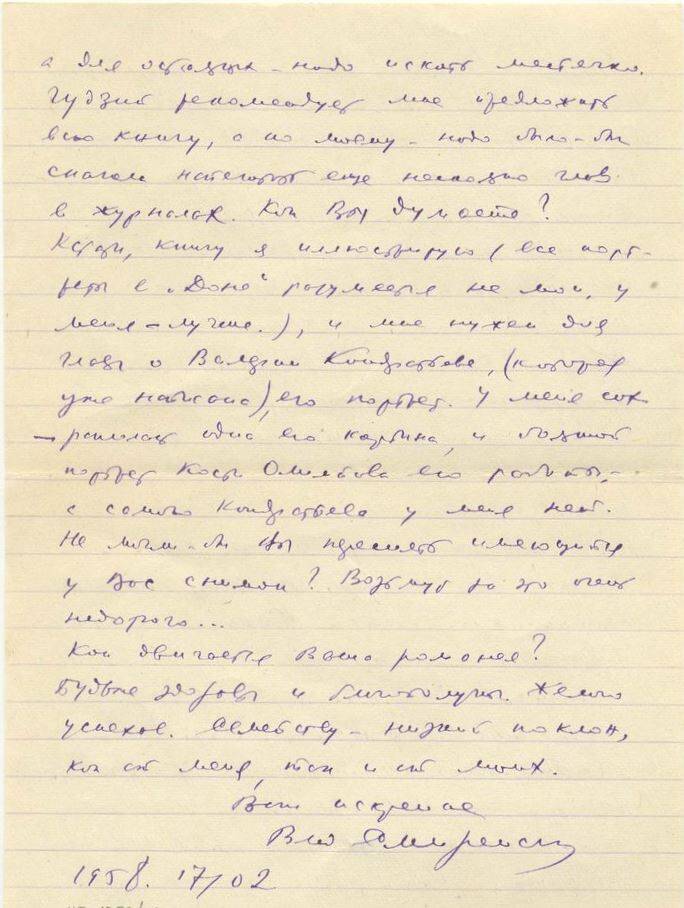 а для остальных - надо искать местечко.
Гудзий рекомендует мне предложить
всю книгу, а по моему - надо было-бы
сначала напечатать еще несколько глав
в журналах. Как Вы думаете?
Кстати, книгу я иллюстрирую (все порт-
реты в "Доне" разумеется не мои, у
меня - лучше.), и мне нужен для
главы о Валерии Кондратьеве, (которая
уже написана), его портрет. У меня сох-
ранилась одна его картина, и большой
портрет Кости Олимпова его работы, -
а самого Кондратьева у меня нет.
Не могли-бы Вы переснять имеющийся
у Вас снимок? Возьмут за это очень
недорого...
Как двигается Ваша романея?
Будьте здоровы и благополучны. Желаю
успехов. Семейству - низкий поклон,
как от меня, так и от моих.
Ваш искренне
Вл Смиренск
1958. 17/02